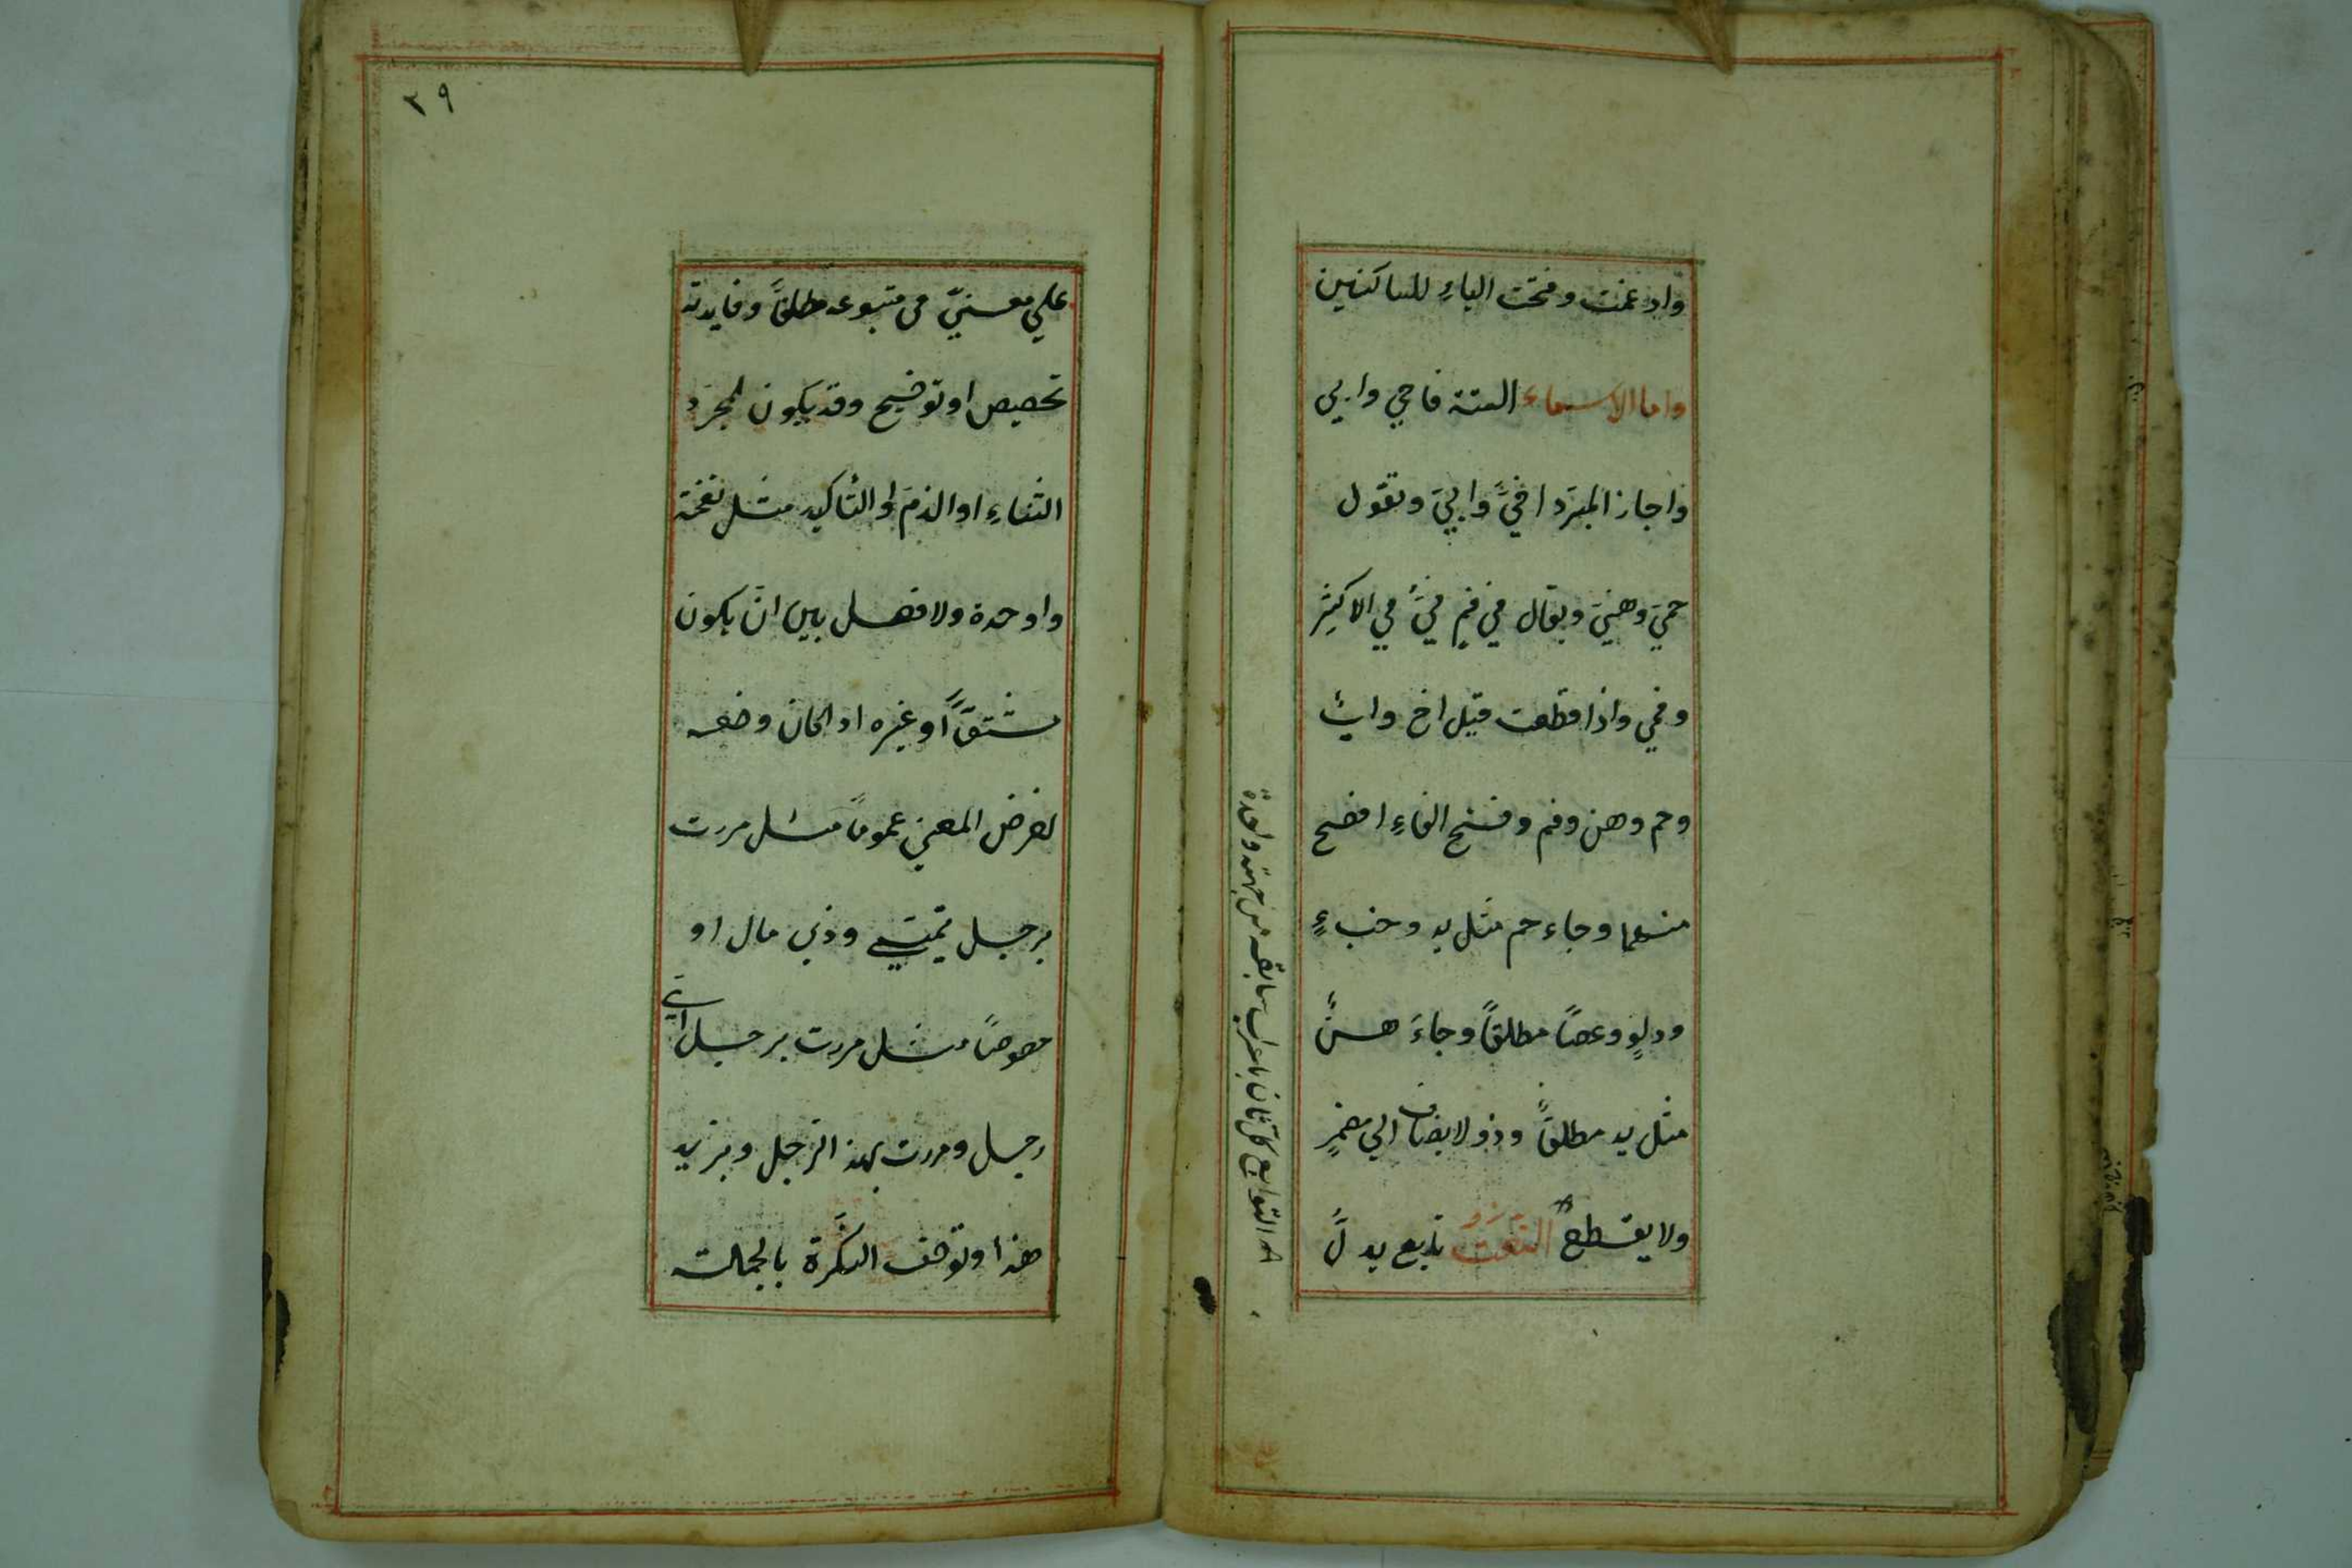 وادغمت وفتحت الياءِ للساكنين
واما الاسماء الستة فاخي وابي
واجاز المبرّد اخيَّ وابيَّ وتقول
حمي وهني ويقال في فم فيَّ في الاكثر
وفمي واذا قطعت قيل اخ واب
وحم وهن وفم وفتح الفاءِ افصح
منهما وجاء حم مثل يد وخبءٍ
ودلوٍ وعصاً مطلقاً وجاءَ هنٌ
مثل يد مطلقاً وذو لا يضاف الي مضمرٍ
ولا يقطع النعت تابع يدلّ
التوابع كل ثان باعراب سابقه من جهة واحدة
٣٩
علي معنيً في متبوعه مطلقاً وفايدته
تخصيص او توضيح وقد يكون لمجرّد
الثناءِ او الذم او التأكيد مثل نفخة
واوحدة ولا فصل بين ان يكون
مشتقاً او غيره اذا كان وضعه
لغرض المعني عموماً مثل مررت
برجل تميمي وذي مال او
خصوصاً مثل مررت برجل اي
رجل ومررت بهذ الرّجل وبزيد
هذا وتوصف النكرة بالجملة